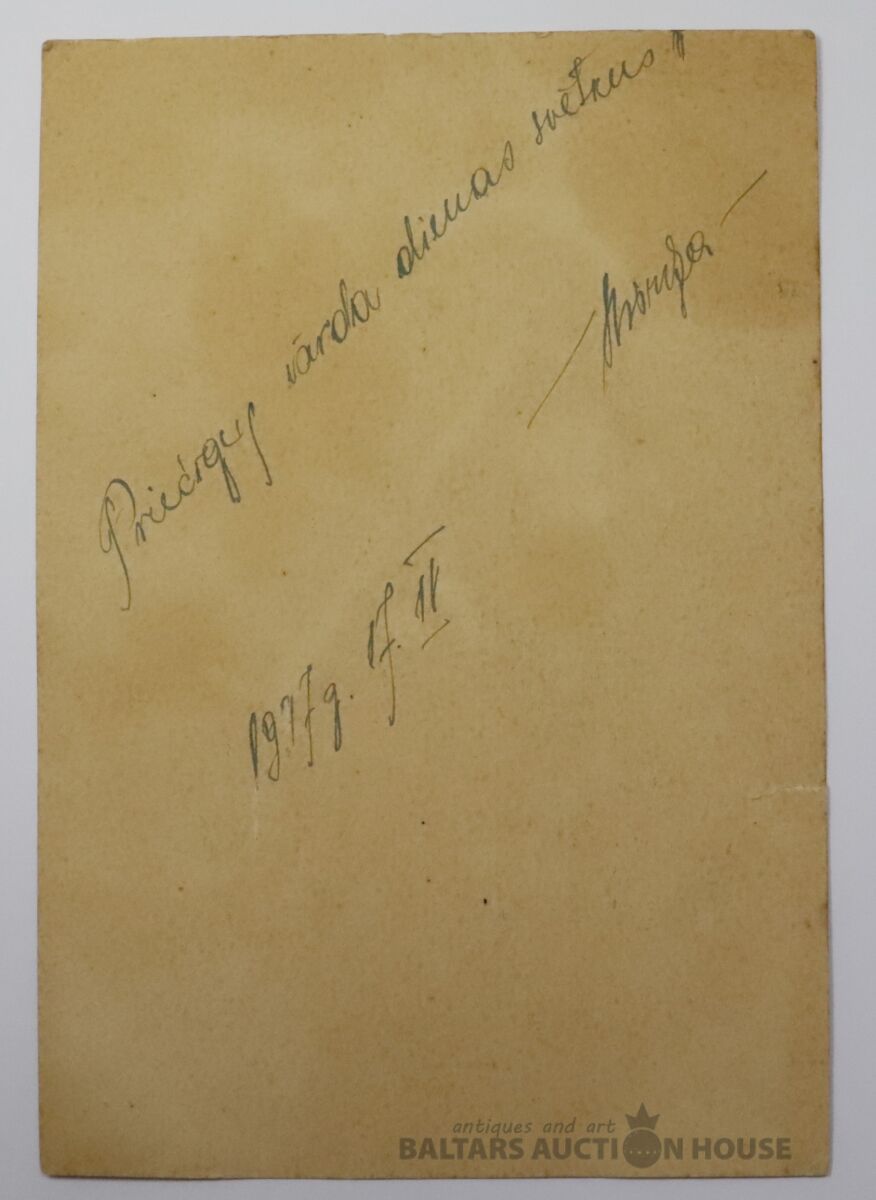 Priecīgus vārda dienas svētkus!
1977g. 17. II
antiques and art
BALTARS AUCTION HOUSE